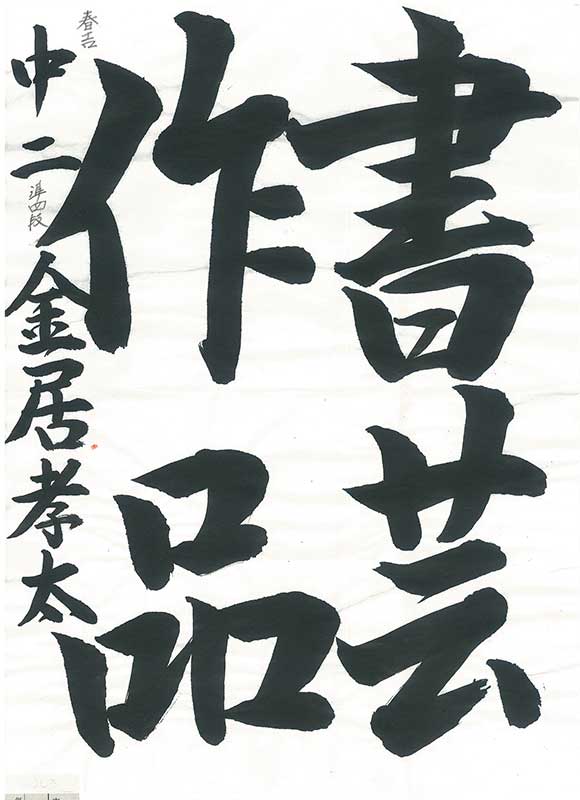 書芸
作品
春吉
中二 準四段 金居孝太